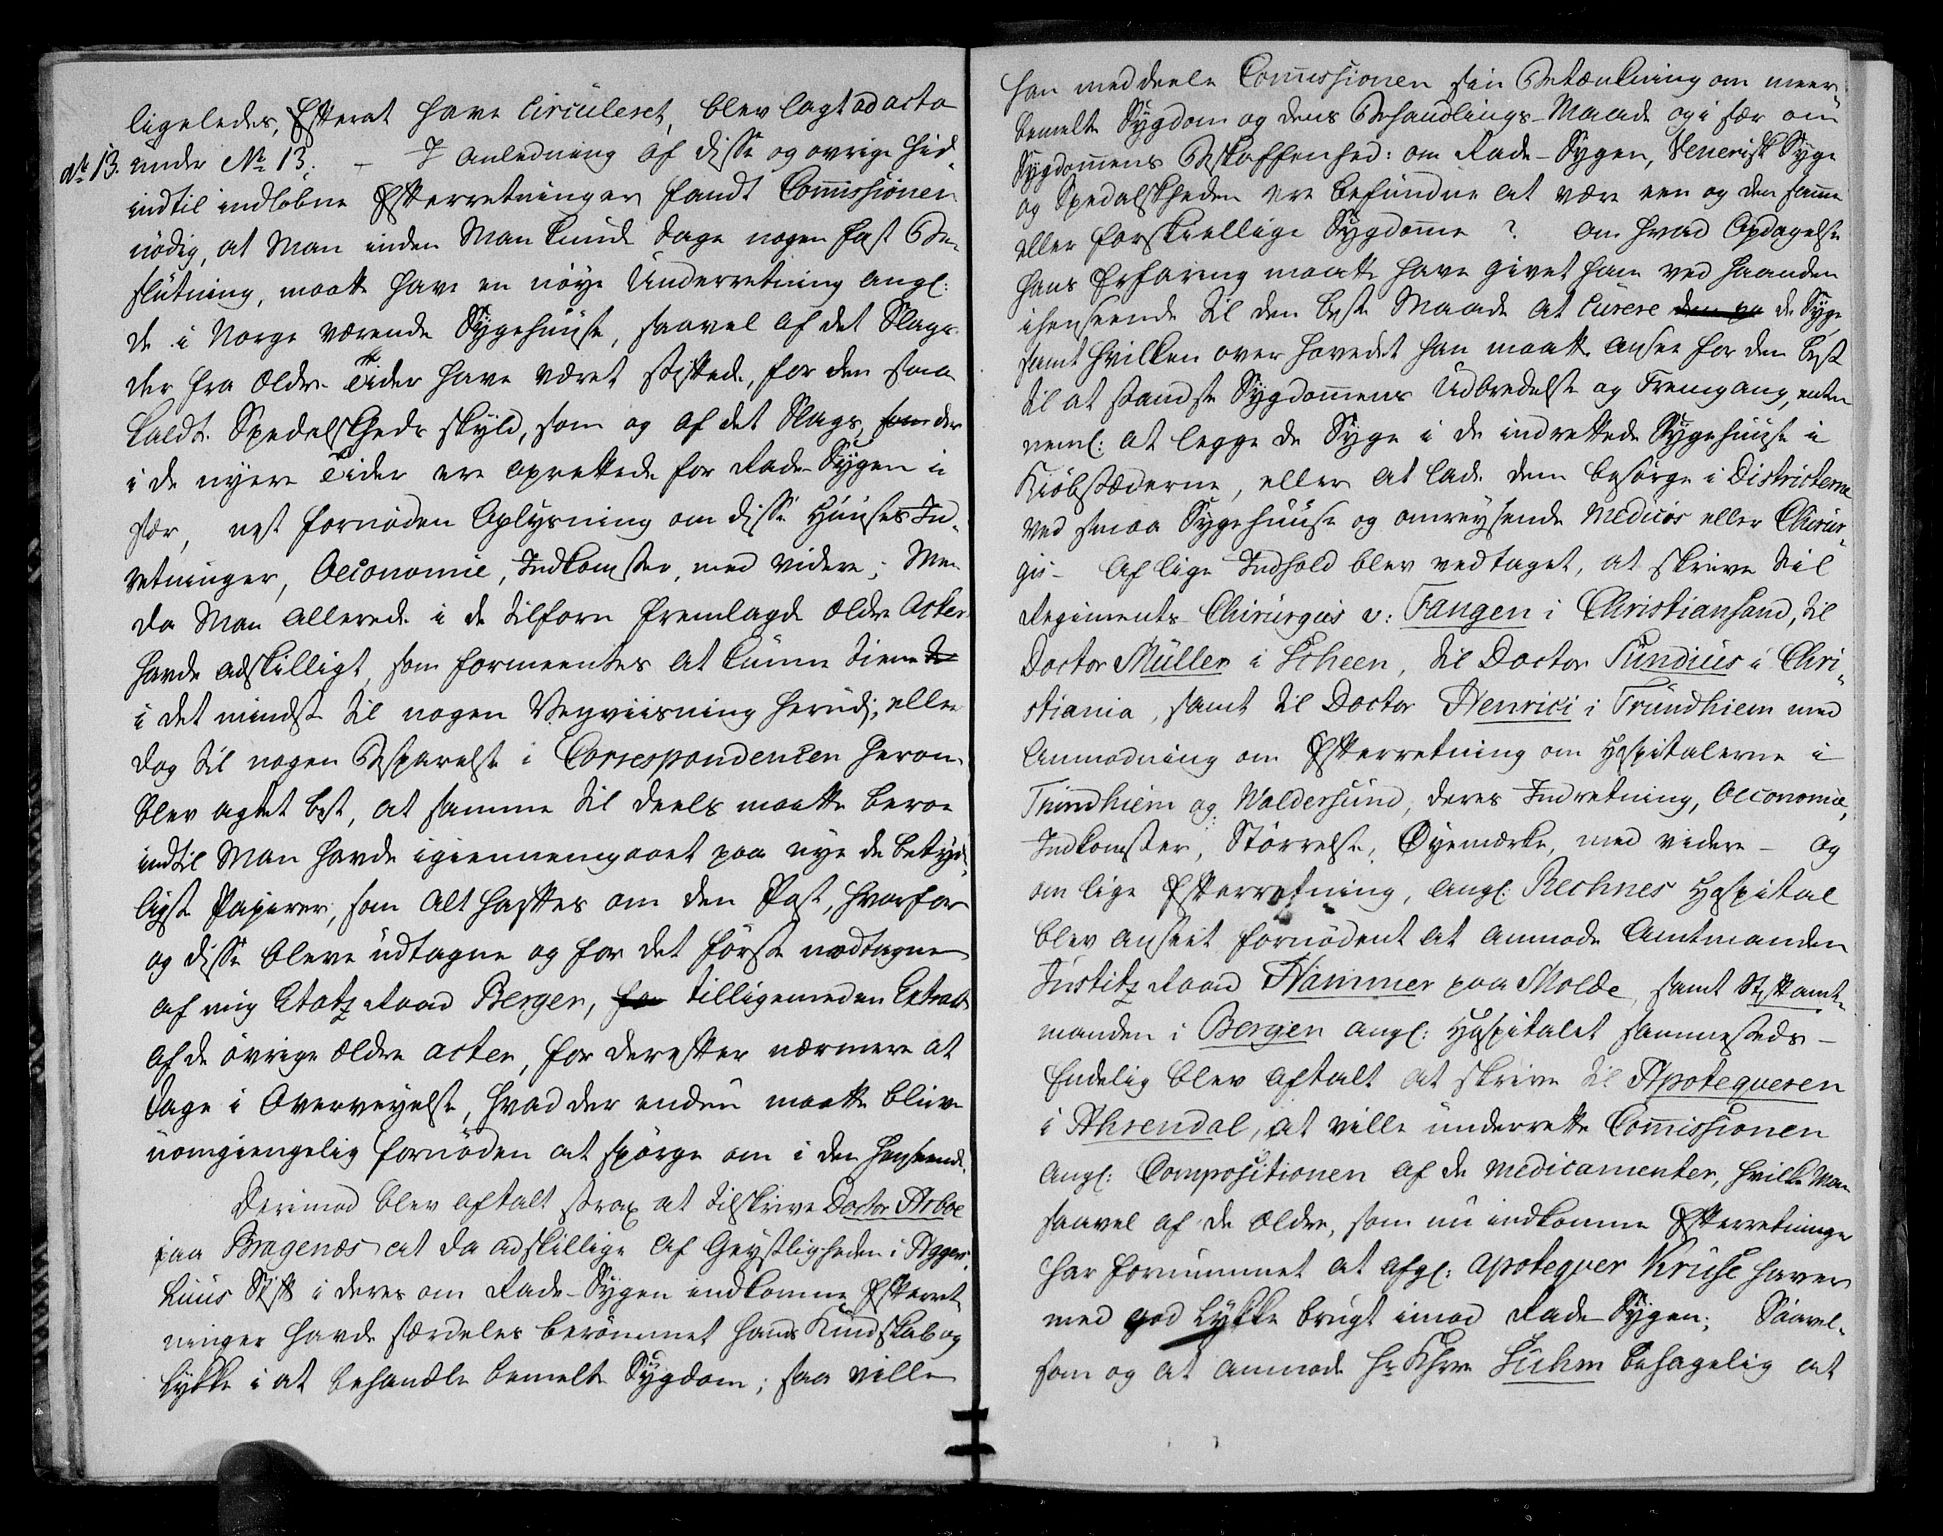 ligeledes, Efterat have Circuleret, blev lagt ad acta
No 13. under No 13. - I Anledning af disse og øvrige hid-
indtil indløbne Efterretninger fandt Commissionen
nödig, at Man inden Man kunde tage nogen fast Be-
slutning, maatte have en nöye Underretning angl:
de i Norge værende Sygehuuse, saavel af det Slags
der fra ældre Tider have været stiftede, for den saa
kaldte Spedalskheds skyld, som og af det Slags, som der
i de nyere Tider ere oprettede for Rade-Sygen i
sær, nest fornøden Oplysning om disse Huuses Ind-
retninger, Oeconomie, Indkomster, med videre; Men
da Man allerede i de tilforn fremlagde ældre Acter
havde adskilligt, som formeentes at kunne tiene
i det mindste til nogen Veyviisning herudj, eller
dog til nogen Besparelse i Correspondencen herom
blev agtet best, at samme til deels maatte beroe
indtil Man havde igiennemgaaet paa nye de betyde-
ligste Papirer, som alt haftes om den Post, hvorfor
og disse bleve udtagne og for det første modtagne
af mig Etatz Raad Berger, for tilligemed en Extract
af de øvrige ældre acter, for derefter nærmere at
tage i Overveyelse, hvad der endnu maatte blive
uomgiengelig fornöden at spörge om i den henseende.
Derimod blev aftalt strax at tilskrive Doctor Arboe
paa Bragenæs at da adskillige af Geystligheden i Agger-
huus Stift i deres om Rade-Sygen indkomne Efterret-
ninger havde særdeles berömmet hans Kundskab og
Lykke i at behandle bemelte Sygdom; saa ville
han meddeele Commissionen sin Betænkning om meer-
bemelte Sygdom og dens Behandlings-Maade og i sær om
Sygdommens Beskaffenhed: om Rade-Sygen, Venerisk Syge
og Spedalskheden ere befundne at være een og den samme
eller forskiellige Sygdomme? om hvad Opdagelse
hans Erfaring maatte have givet ham ved haanden
ihenseende til den beste Maade at Curere den pa de Syge
samt hvilken over hovedet han maatte ansee for den best
til at standse Sygdommens Udbredelse og Fremgang, enten
neml: at legge de Syge i de indrettede Sygehuuse i
Kiöbstæderne, eller at lade dem besörge i Districterne
ved smaa Sygehuuse og omreysende Medicos eller Chirur-
gis - Af lige Indhold blev vedtaget, at skrive til
Regiments Chirurgus v: Fangen i Christiansand, til
Doctor Müller i Scheen, til Doctor Tundius i Chri-
stiania, samt til Doctor Henrici i Trundhiem med
Anmodning om Efterretning om Hospitalerne i
Trundhiem og Woldersund, deres Indretning, Oeconomie,
Indkomster, Störrelse, Öyemærke, med videre - og
om lige Efterretning, angl: Rechnes Hospital
blev anseet fornødent at anmode Amtmanden
Justitz Raad Hammer paa Molde, samt Stiftamt-
manden i Bergen angl: Hospitalet sammesteds -
Endelig blev aftalt at skrive til Apotequeren
i Ahrendal, at ville underrette Commissionen
angl: Compositionen af de Medicamenter, hvilke Man
saavel af de ældre, som nu indkomne Efterretninger
har fornummet at afgl: Apotequer Kruse haver
med god Lykke brugt imod Rade-Sygen; Saavel-
som og at anmode Hr Khrr Suhm behagelig at